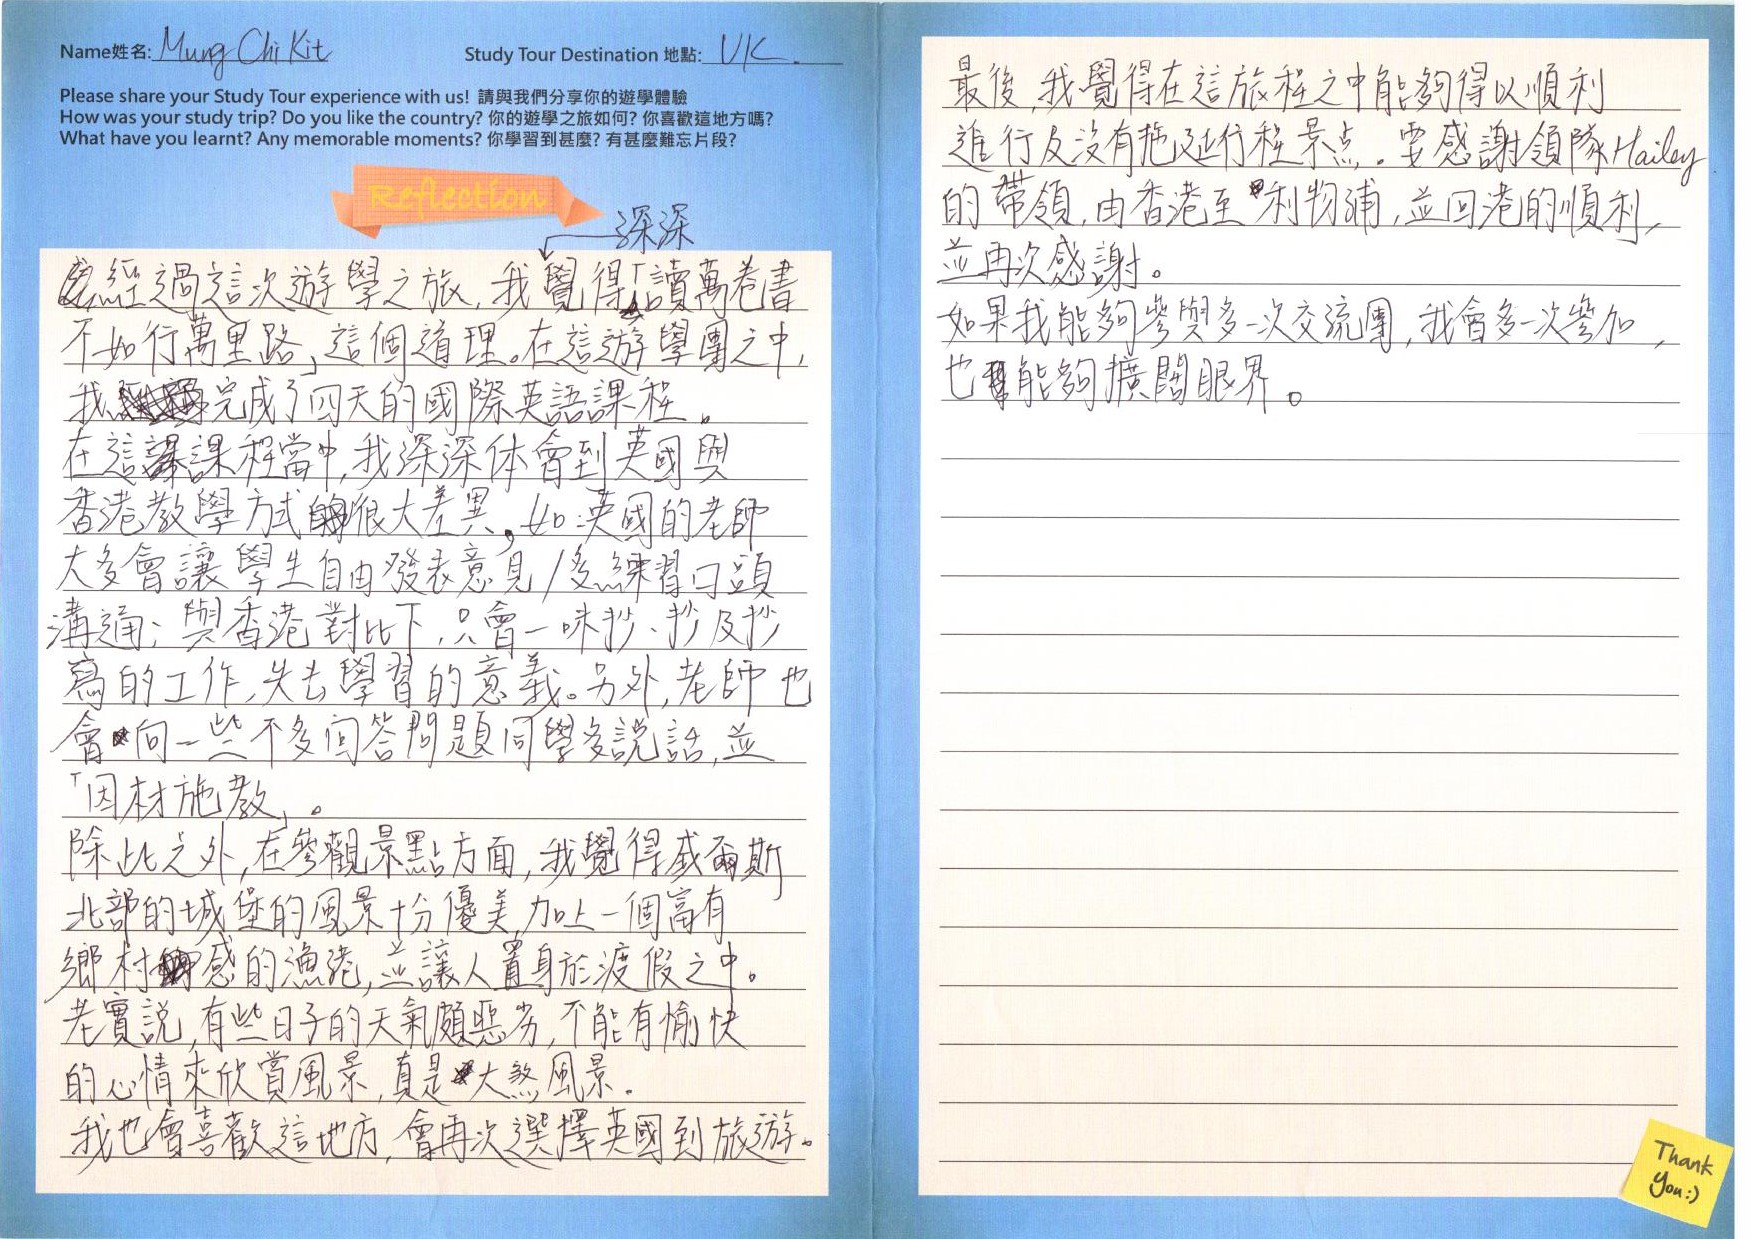 Name姓名: Mung Chi Kit Study Tour Destination 地點: UK.
Please share your Study Tour experience with us! 請與我們分享你的遊學體驗
How was your study trip? Do you like the country? 你的遊學之旅如何? 你喜歡這地方嗎?
What have you learnt? Any memorable moments? 你學習到甚麼? 有甚麼難忘片段?
Reflection
深深
經過這次遊學之旅,我覺得「讀萬卷書
不如行萬里路」這個道理。在這遊學團之中,
我完成了四天的國際英語課程。
在這課程當中,我深深体會到英國與
香港教學方式很大差異,如:英國的老師
大多會讓學生自由發表意見/多練習口頭
溝通;與香港對比下,只會一味抄、抄及抄
寫的工作,失去學習的意義。另外,老師也
會向一些不多回答問題同學多說話,並
「因材施教」。
除此之外,在參觀景點方面,我覺得威爾斯
北部的城堡的風景十分優美,加上一個富有
鄉村感的漁港,並讓人置身於渡假之中。
老實說,有些日子的天氣頗惡劣,不能有愉快
的心情來欣賞風景,真是大煞風景。
我也會喜歡這地方,會再次選擇英國到旅遊。
最後,我覺得在這旅程之中能夠得以順利
進行及沒有拖延行程景点。要感謝領隊Hailey
的帶領,由香港至利物浦,並回港的順利,
並再次感謝。
如果我能夠參與多一次交流團,我會多一次參加,
也能夠擴闊眼界。
Thank
you:)